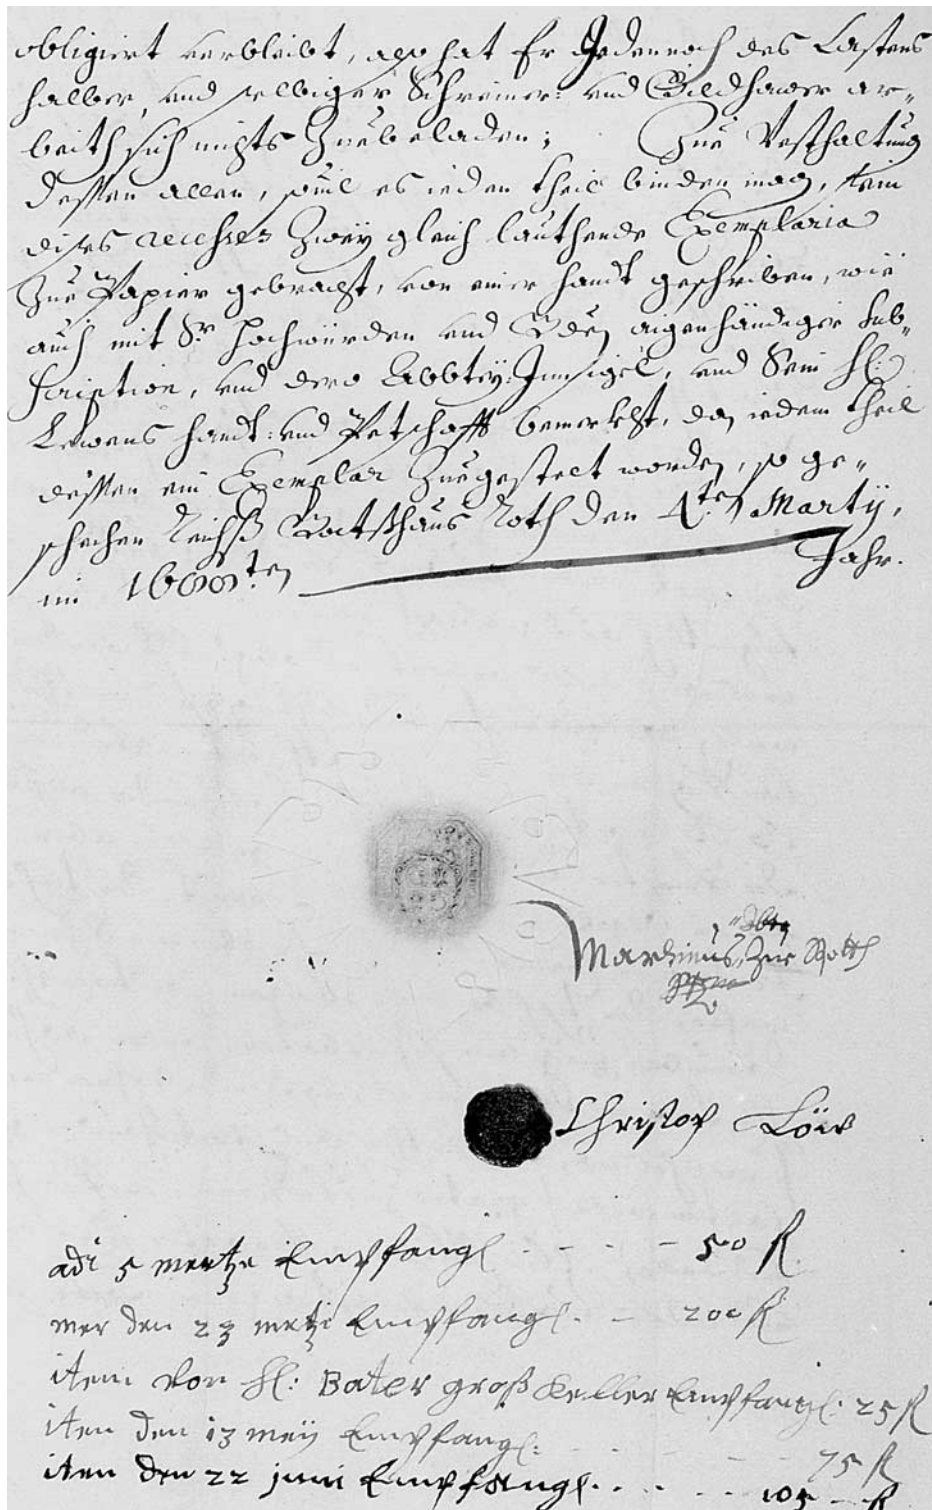 obligiert verbleibt, also hat Er Jedennoch des Lastens
halber, und selbiger Schreiner: und Bildhawer ar-
beith sich nichts Zuebeladen; Zue Vesthaltung
dessen allen, souil es ieden theil binden mag, sein
dises recesses Zwey gleich lauthende Exemplaria
Zue Papier gebracht, von einer handt geschriben, wie
auch mit Sr. Hochwürden und aigenhändiger sub-
scription, und dero Abbtey: Innsigel, und Sein Hl:
Löwens handt: und Petschafft bemerkht, da iedem theil
dessen ein Exemplar Zuegestelt worden, so ge-
schechen Reichß Gottßhaus Roth den 4ten Martÿ,
im 1688ten Jahr.
Martinus Abbt Zue Roth
Christof Löw
adi 5 mertze Empfangen - - - 50 fl
mer den 23 metzi Empfangen. - 200 fl
item von Hl: Pater groß Keller Empfangen: 25 fl
iten den 13 meÿ Empfangen: - - 75 fl
iten den 22 juni Empfangen. . . . - - 105 - fl